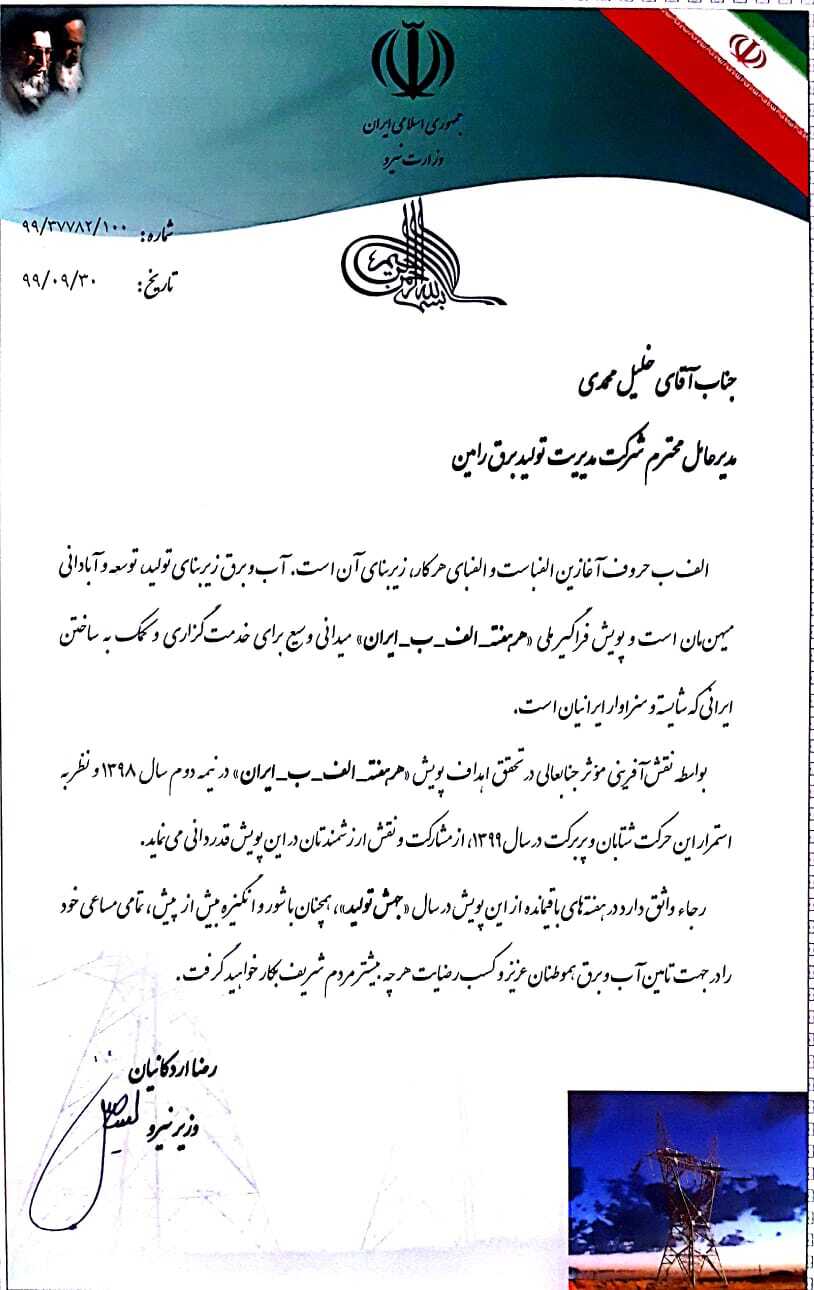 جمهوری اسلامی ایران
وزارت نیرو
شماره: ۹۹/۳۷۷۸۲/۱۰۰
تاریخ: ۹۹/۰۹/۳۰
بسم الله الرحمن الرحیم
جناب آقای خلیل محمدی
مدیرعامل محترم شرکت مدیریت تولید برق رامین
الف ب حروف آغازین الفباست و الفبای هر کار، زیربنای آن است. آب و برق زیربنای تولید، توسعه و آبادانی
میهن‌مان است و پویش فراگیر ملی «هرهفته_الف_ب_ایران» میدانی وسیع برای خدمت‌گزاری و کمک به ساختن
ایرانی که شایسته و سزاوار ایرانیان است.
بواسطه نقش‌آفرینی مؤثر جنابعالی در تحقق اهداف پویش «هرهفته_الف_ب_ایران» در نیمه دوم سال ۱۳۹۸ و نظر به
استمرار این حرکت شتابان و پربرکت در سال ۱۳۹۹، از مشارکت و نقش ارزشمندتان در این پویش قدردانی می‌نماید.
رجاء واثق دارد در هفته‌های باقیمانده از این پویش در سال «جهش تولید»، همچنان با شور و انگیزه بیش از پیش، تمامی مساعی خود
را در جهت تامین آب و برق هموطنان عزیز و کسب رضایت هرچه بیشتر مردم شریف بکار خواهید گرفت.
رضا اردکانیان
وزیر نیرو